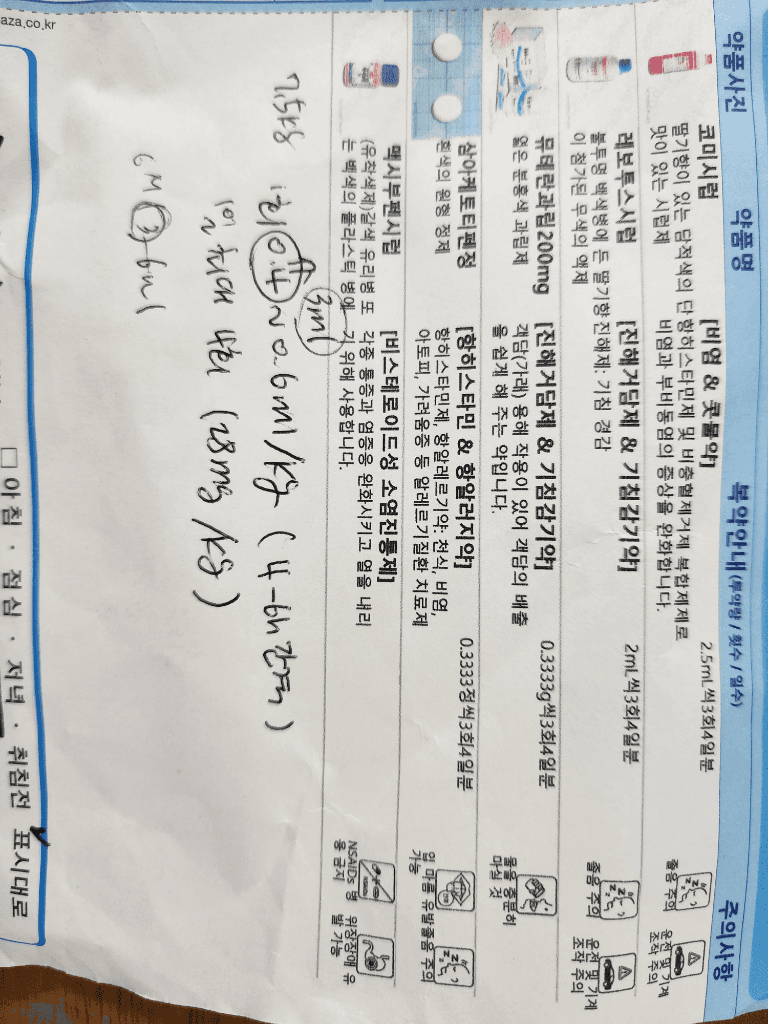 약품사진 약품명 복약안내 (투약량 / 횟수 / 일수) 주의사항
코미시럽 [비염 & 콧물약] 2.5mL씩3회4일분
딸기향이 있는 담적색의 단맛이 있는 시럽제
항히스타민제 및 비충혈제거제 복합제제로
비염과 부비동염의 증상을 완화합니다.
졸음 주의
운전 및 기계
조작 주의
레보투스시럽 [진해거담제 & 기침감기약] 2mL씩3회4일분
불투명 백색병에 든 딸기향
이 첨가된 무색의 액제
진해제: 기침 경감
졸음 주의
운전 및 기계
조작 주의
뮤테란과립200mg [진해거담제 & 기침감기약] 0.3333g씩3회4일분
엷은 분홍색 과립제
객담(가래) 용해 작용이 있어 객담의 배출
을 쉽게 해 주는 약입니다.
물을 충분히
마실 것
삼아케토티펜정 [항히스타민 & 항알러지약] 0.3333정씩3회4일분
흰색의 원형 정제
항히스타민제, 항알레르기약: 천식, 비염,
아토피, 가려움증 등 알레르기질환 치료제
입 마름 유발
가능
졸음 주의
맥시부펜시럽 [비스테로이드성 소염진통제]
(유착색제)갈색 유리병 또
는 백색의 플라스틱 병에
각종 통증과 염증을 완화시키고 열을 내리
기 위해 사용합니다.
NSAIDs 병
용 금지
위장장애 유
발 가능
3ml
7.5kg 1회 0.4~0.6ml/kg (4-6h간격)
1일 최대 4회 (28mg/kg)
6M 3, 6ml
aza.co.kr
□ 아침 · 점심 · 저녁 · 취침전 표시대로